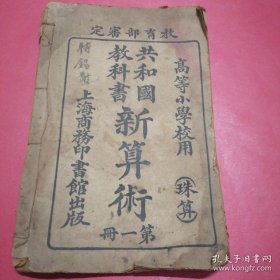 教育部審定
高等小學校用
珠算
共和國
教科書
新算術
第一冊
上海商務印書館出版
孔夫子旧书网